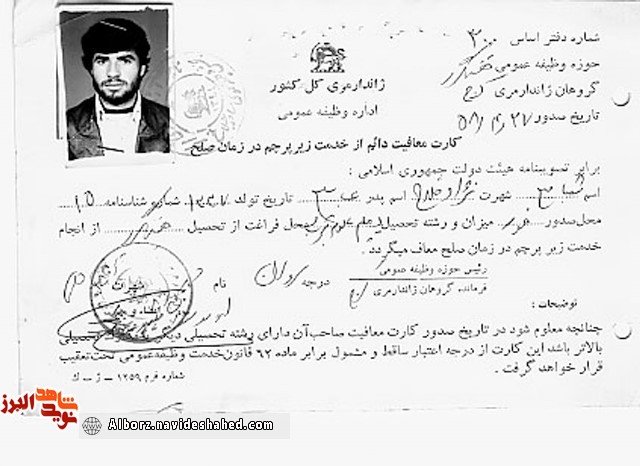 شماره دفتر اساس ۳۰۰
حوزه وظیفه عمومی
گروهان ژاندارمری کرج
تاریخ صدور ۵۸/۴/۲۷
ژاندارمری کل کشور
اداره وظیفه عمومی
کارت معافیت دائم از خدمت زیر پرچم در زمان صلح
برابر تصویبنامه هیئت دولت جمهوری اسلامی :
اسم شهرت اسم پدر تاریخ تولد ۱۳۳۷ شماره شناسنامه ۱۵
محل صدور میزان و رشته تحصیل دیپلم محل فراغت از تحصیل از انجام
خدمت زیر پرچم در زمان صلح معاف میگردد .
رئیس حوزه وظیفه عمومی
فرمانده گروهان ژاندارمری کرج
درجه نام شهرت
توضیحات :
چنانچه معلوم شود در تاریخ صدور کارت معافیت صاحب آن دارای رشته تحصیلی تحصیلی
بالاتر باشد این کارت از درجه اعتبار ساقط و مشمول برابر ماده ۶۲ قانون خدمت وظیفه عمومی تحت تعقیب
قرار خواهد گرفت .
شماره فرم ۱۲۵۹ - ژ - ک
نوید شاهد البرز
Alborz.navideshahed.com